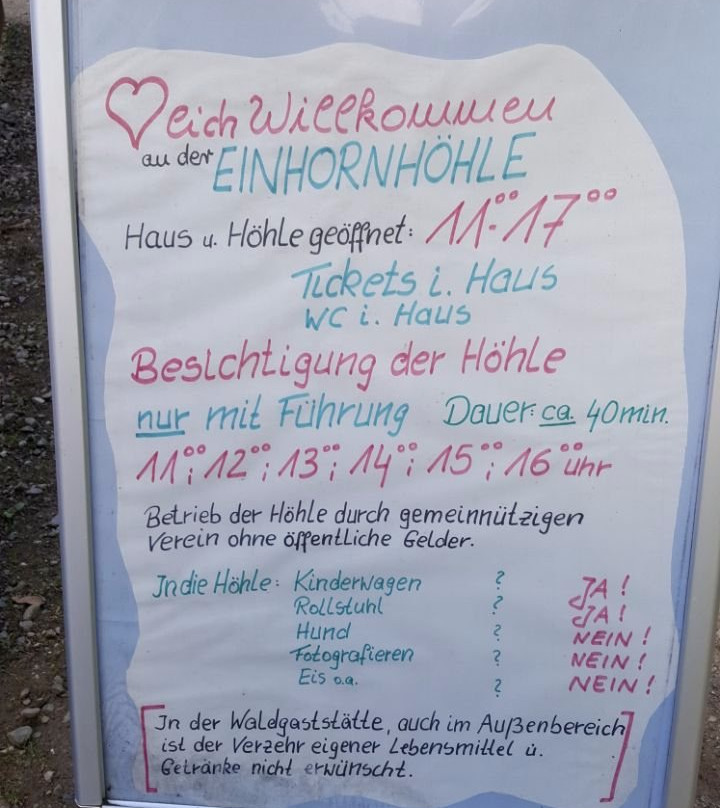 ♡eich Willkommen
an der EINHORNHÖHLE
Haus u. Höhle geöffnet: 11⁰⁰-17⁰⁰
Tickets i. Haus
WC i. Haus
Besichtigung der Höhle
nur mit Führung Dauer: ca. 40min.
11⁰⁰; 12⁰⁰; 13⁰⁰; 14⁰⁰; 15⁰⁰; 16⁰⁰ Uhr
Betrieb der Höhle durch gemeinnützigen
Verein ohne öffentliche Gelder.
In die Höhle: Kinderwagen ? JA!
Rollstuhl ? JA!
Hund ? NEIN!
Fotografieren ? NEIN!
Eis o.a. ? NEIN!
[In der Waldgaststätte, auch im Außenbereich
ist der Verzehr eigener Lebensmittel u.
Getränke nicht erwünscht.]